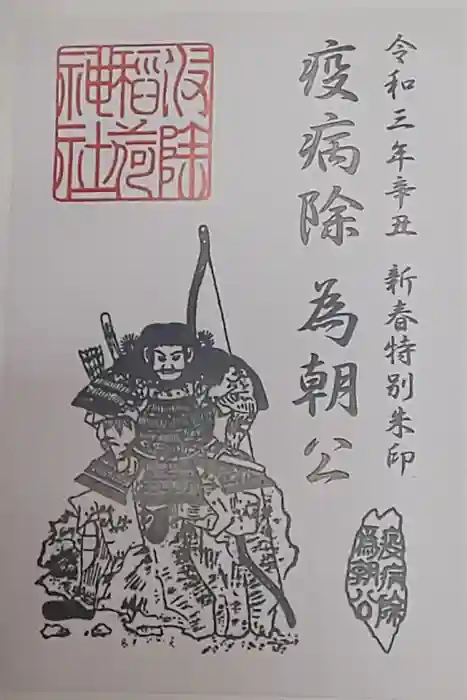 令和三年辛丑 新春特別朱印
疫病除 為朝公
波除
稲荷
神社
疫病除
為朝公